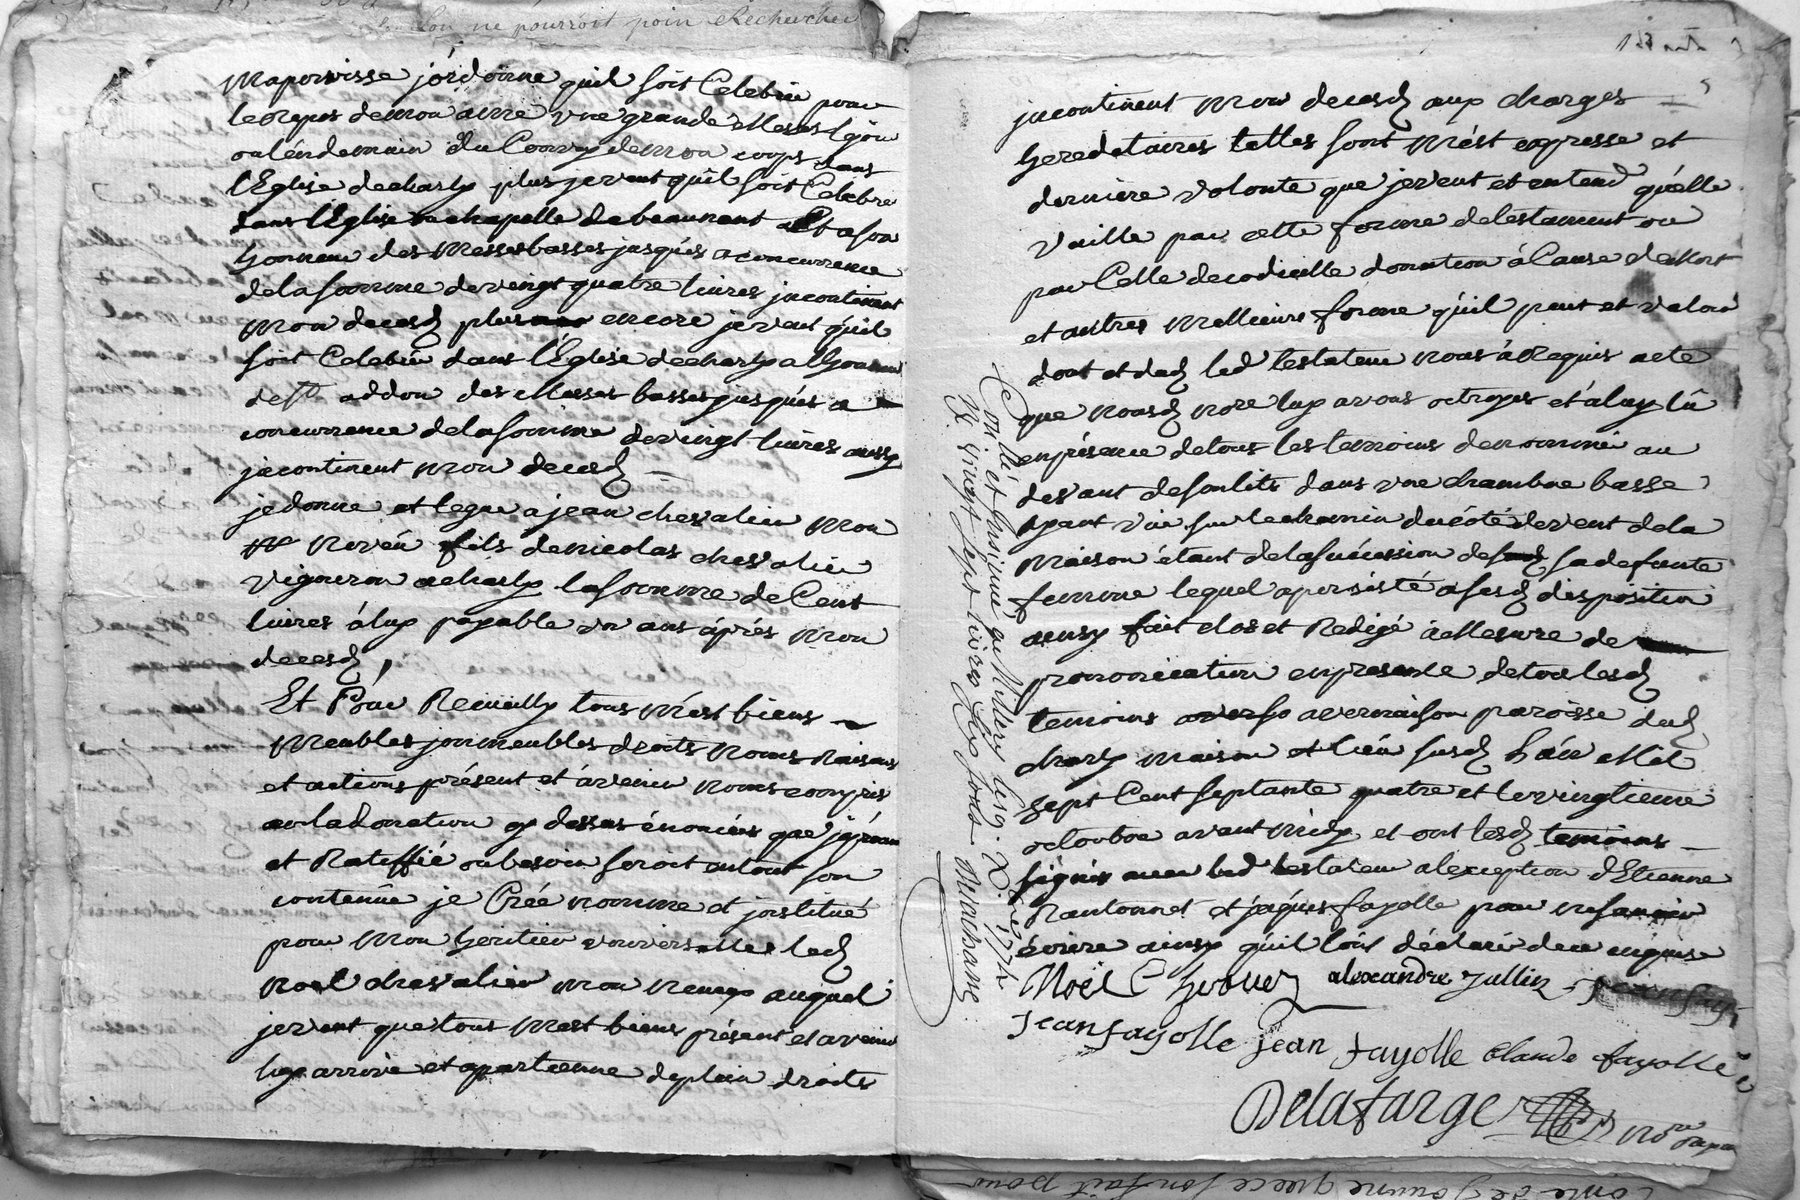 lon ne pourroit poin Rechercher
Maparoisse jórdonne quil soit Celebrée pour
le Repos demon ame une grande Messe le jour
oulendemain du Convoy demon corps dans
l'Eglise decharly plus jeveut quil soit Celebre
dans l'Eglise ou chapelle de beaunant Et ason
honneur des Messes basses jusqués a concurrence
dela somme devingt quatre livres jncontinent
mon decesd plus encore jeveut quil
soit Celebrée dans l'Eglise decharly a lhonneur
de st addon des Messes basses jusqués a
concurrence delasomme devingt livres aussy
jncontinent mon decesd
je donne et legue a jean chevalier mon
neveü fils denicolas chevalier
vigneron acharly lasomme de Cent
livres áluy payable un ans áprés mon
decesd
Et Pour Recueilly tous mest biens
meubles jmmeubles droits noms Raisons
et actions présent et ávenir noms compris
au ladonation cy dessus énoncées que j'aprouve
et Ratiffié oubesoin seroit entout son
contenüe je Crée nomme et jnstitué
pour mon heritier vniverselle led
noel chevalier mon neveux auquel
jeveut que tous mest biens présent et avenir
luy arrivé et apartienne deplein droits
jncontinent mon decesd aux charges
hereditaires telles sont mést expresse et
derniere volonte que jeveut et entend quélle
vaille par cette forme detestament ou
par Celle decodicille donation á Cause demort
et autres meillieurs forme quil peut et valoir
dont et dud led testateur nous á Requis acte
que nousd nore luy avons octroyes et áluy lû
en présence detous les temoins denommé au
devant desonlits dans une chambre basse
ayant vüe sur le chemin ducóté devent dela
maison étant delasucéssion de sadefunte
femme lequel apersisté asesd disposition
ainsy fait clos et Redigé áMesure de
prononciation enpresence detous lesd
temoins a vernaison paroisse dud
charly maison et lieu susd L'án Mil
sept Cent septante quatre et levingtieme
octoubre avant midy et ont lesd temoins
signés avec led testateur alexception d'Etienne
Rantonnet et jaques fayolle pour nesavoir
écrire ainsy quil lont déclaré dece enquise
Noël Chevalier alexandre Jullin jean fayolle
Jean fayolle jean fayolle claude fayolle
Delafarge nore Royal
Conllé et jnsinué au Millery le 29. Xbre 1774
R. vingt sept livres dix sous Machane